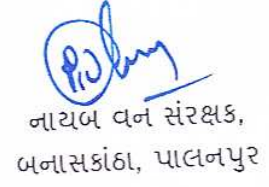 નાયબ વન સંરક્ષક,
બનાસકાંઠા, પાલનપુર